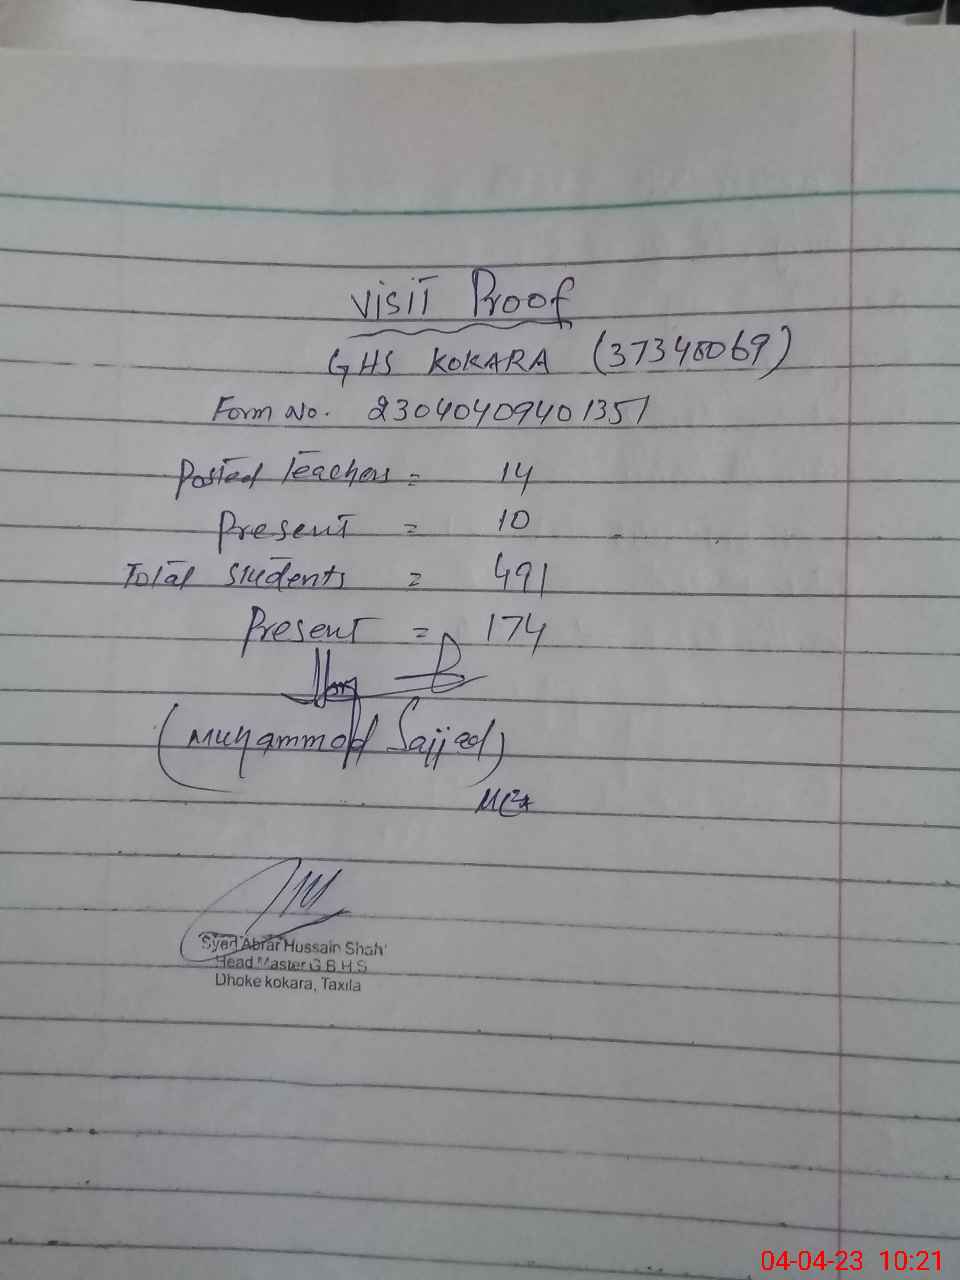 Visit Proof
GHS KOKARA (37340069)
Form No. 23040409401351
Posted Teachers = 14
Present = 10
Total Students = 491
Present = 174
(Muhammad Sajjad)
Syed Abrar Hussain Shah
Head Master G.B.H.S
Dhoke kokara, Taxila
04-04-23 10:21